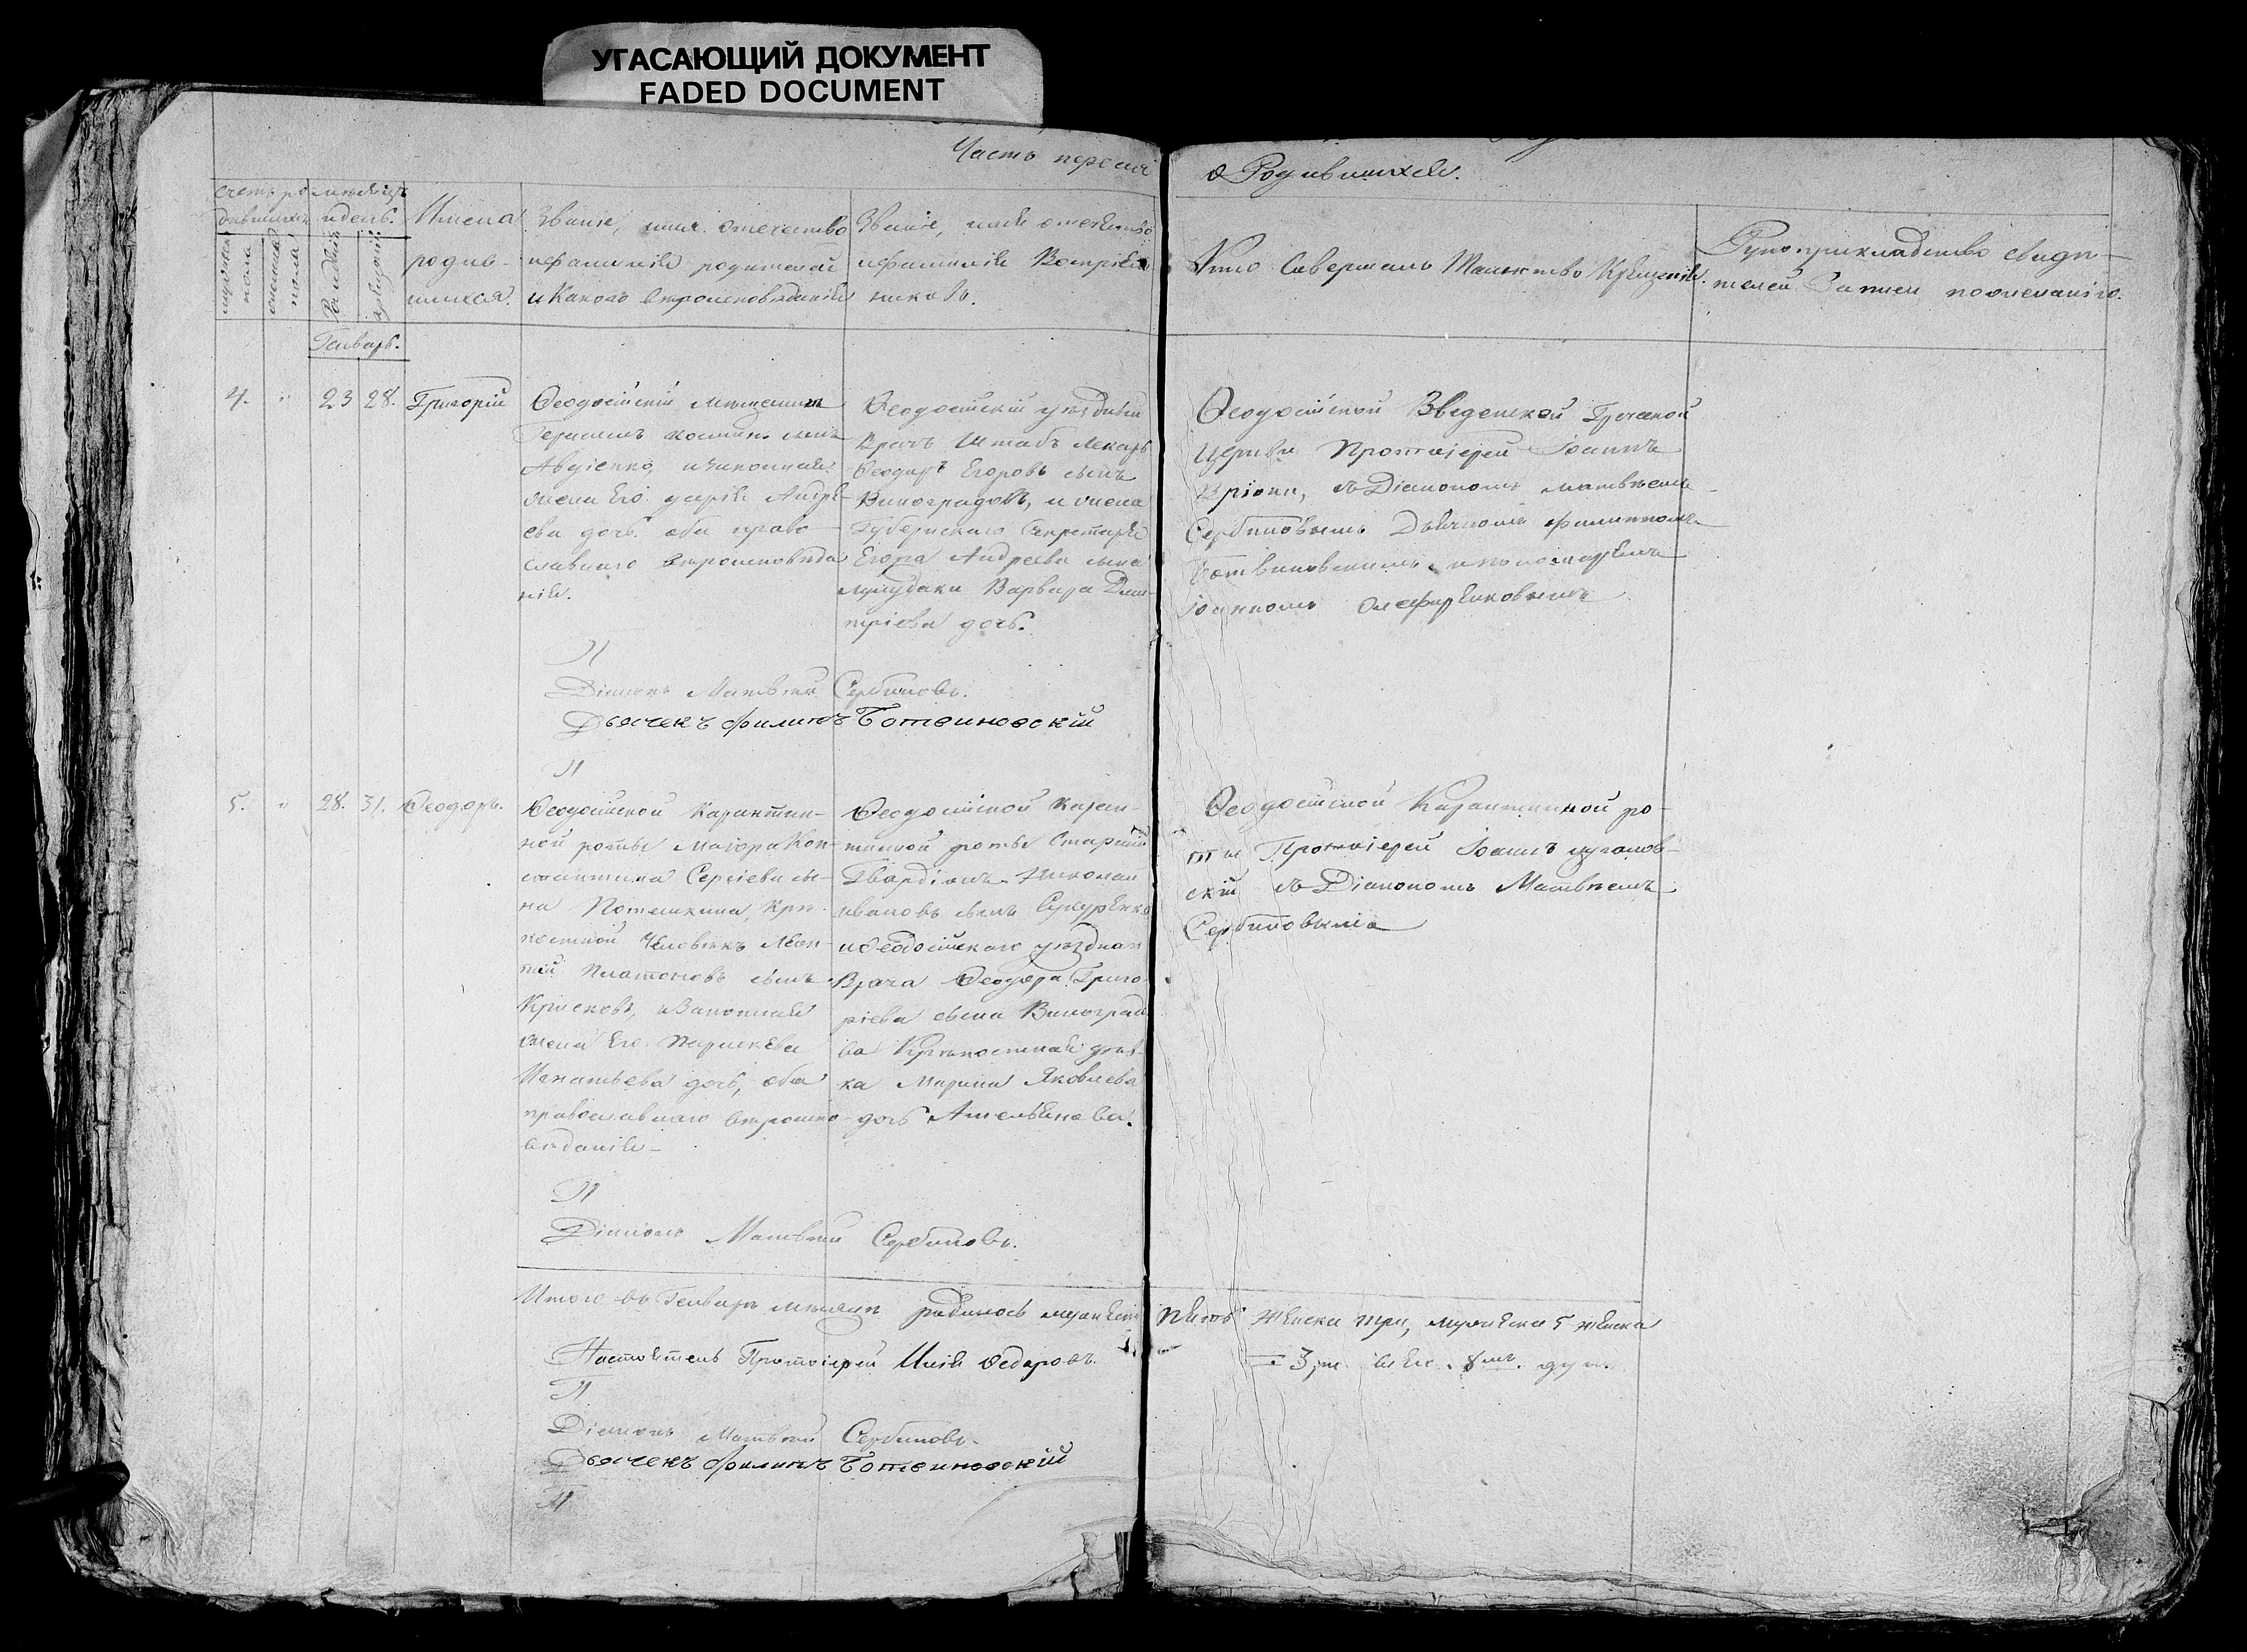 УГАСАЮЩИЙ ДОКУМЕНТ
FADED DOCUMENT
Часть первая
о Родившихся.
счетъ ро
дившихъ
мѣсяцъ
и день.
мужеска
пола
женска
пола
Рожденія
крещенія
Имена
родив-
шихся.
Званіе, имя отечество
и фамилія родителей
и Какого вѣроисповѣданія
Званіе, имя отечество
и фамилія Воспріем-
никовъ.
Кто Совершалъ Таинство Крещенія.
Рукоприкладство свидѣ-
телей Записи по желанію.
Генварь.
4. " 23 28. Григорій
Ѳеодосійскій мѣщанинъ
Герасимъ сынъ
Авдіенко, и законная
жена Его Дарія Андре-
ева дочь. оба право-
славнаго вѣроисповѣда
нія.
Ѳеодосійскій уѣздный
Врачъ Штабъ Лекарь
Ѳеодоръ Егоровъ сынъ
Виноградовъ, и жена
Губернскаго Секретаря
Егора Андреева сына
Варвара Дми-
тріева дочь.
Ѳеодосійской Введенской Греческой
Церкви Протоіерей Іоаннъ
съ Діакономъ Матвѣемъ
Сербиновымъ Дьячкомъ Филиппомъ
Ботвиновскимъ и пономаремъ
Іоанномъ
П
Діаконъ Матвѣй Сербиновъ.
Дьячекъ Филипъ Ботвиновскій
П
5. " 28. 31. Ѳеодоръ.
Ѳеодосійской Карантин-
ной роты Маіора Кон-
стантина Сергіева сы-
на Потемкина, Крѣ-
постной Человѣкъ Леон-
тій Платоновъ сынъ
и Законная
жена Его Параскева
Игнатьева дочь, оба
православнаго вѣроиспо-
вѣданія
Ѳеодосійской каран-
тинной роты Старшій
Гвардіонъ Николай
Ивановъ сынъ
и Ѳеодосійскаго уѣзднаго
Врача Ѳеодора Григо-
ріева сына Виноградо
ва Крѣпостная дѣв-
ка Марина Яковлева
дочь
Ѳеодосійской Карантинной ро-
ты Протоіерей Іоаннъ
скій съ Діакономъ Матвѣемъ
Сербиновымъ
П
Діаконъ Матвѣй Сербиновъ.
Итого въ Генварѣ мѣсяцѣ родилось мужеска пять женска три, мужеска 5 женска
3,
Настоятель Протоіерей Илія Ѳедоровъ.
П
Діаконъ Матвѣй Сербиновъ.
Дьячекъ Филипъ Ботвиновскій
П